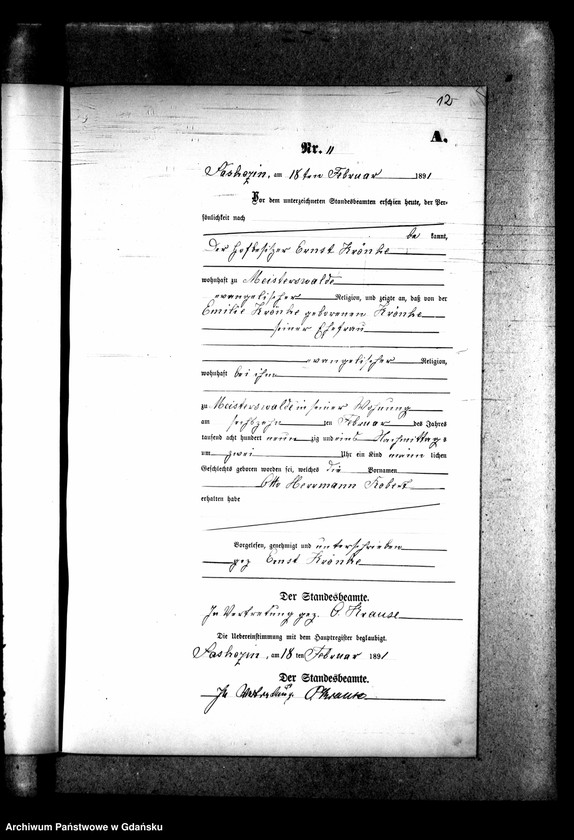 12
A.
Nr. 11
am 18ten Februar 1891
Vor dem unterzeichneten Standesbeamten erschien heute, der Per-
sönlichkeit nach
be kannt,
der Hofbesitzer Ernst Krönke
wohnhaft zu Meisterswalde
evangelischer Religion, und zeigte an, daß von der
Emilie Krönke geborenen Krönke
seiner Ehefrau
evangelischer Religion,
wohnhaft bei ihm
zu Meisterswalde in seiner Wohnung
am sechszehn ten Februar des Jahres
tausend acht hundert neun zig und eins Nachmittags
um zwei Uhr ein Kind männ lichen
Geschlechts geboren worden sei, welches die Vornamen
Otto Herrmann Robert
erhalten habe
Vorgelesen, genehmigt und unterschrieben
gez Ernst Krönke
Der Standesbeamte.
In Vertretung gez. O. Krause
Die Uebereinstimmung mit dem Hauptregister beglaubigt.
am 18 ten Februar 1891
Der Standesbeamte.
In Vertretung. O Krause
Archiwum Państwowe w Gdańsku